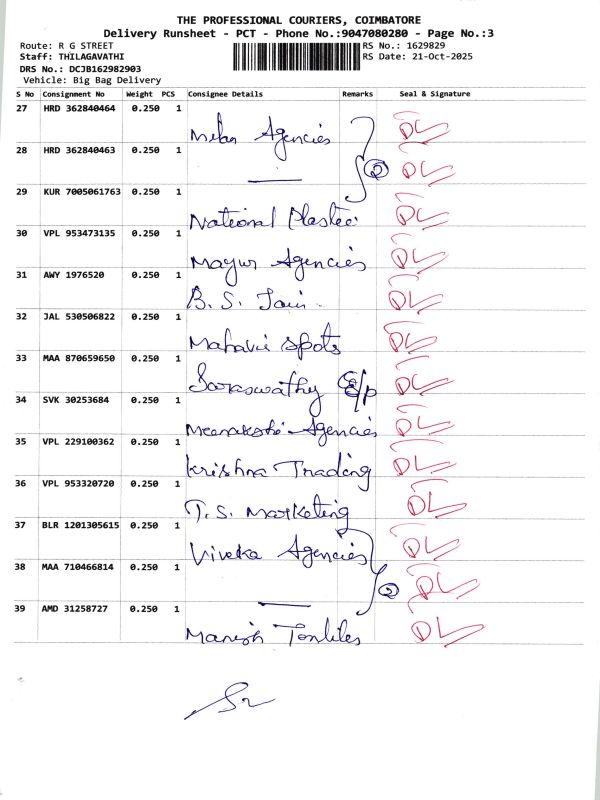 THE PROFESSIONAL COURIERS, COIMBATORE
Delivery Runsheet - PCT - Phone No.:9047080280 - Page No.:3
Route: R G STREET RS No.: 1629829
Staff: THILAGAVATHI RS Date: 21-Oct-2025
DRS No.: DCJB162982903
Vehicle: Big Bag Delivery
S No Consignment No Weight PCS Consignee Details Remarks Seal & Signature
27 HRD 362840464 0.250 1 Agencies DL
28 HRD 362840463 0.250 1 — 2 DL
29 KUR 7005061763 0.250 1 National DL
30 VPL 953473135 0.250 1 Mayur Agencies DL
31 AWY 1976520 0.250 1 B. S. Jain DL
32 JAL 530506822 0.250 1 Mahavir Spots DL
33 MAA 870659650 0.250 1 Saraswathy E/p DL
34 SVK 30253684 0.250 1 Meenakshi Agencies DL
35 VPL 229100362 0.250 1 Krishna Trading DL
36 VPL 953320720 0.250 1 T.S. Marketing DL
37 BLR 1201305615 0.250 1 Viveka Agencies DL
38 MAA 710466814 0.250 1 — 2 DL
39 AMD 31258727 0.250 1 Manish DL